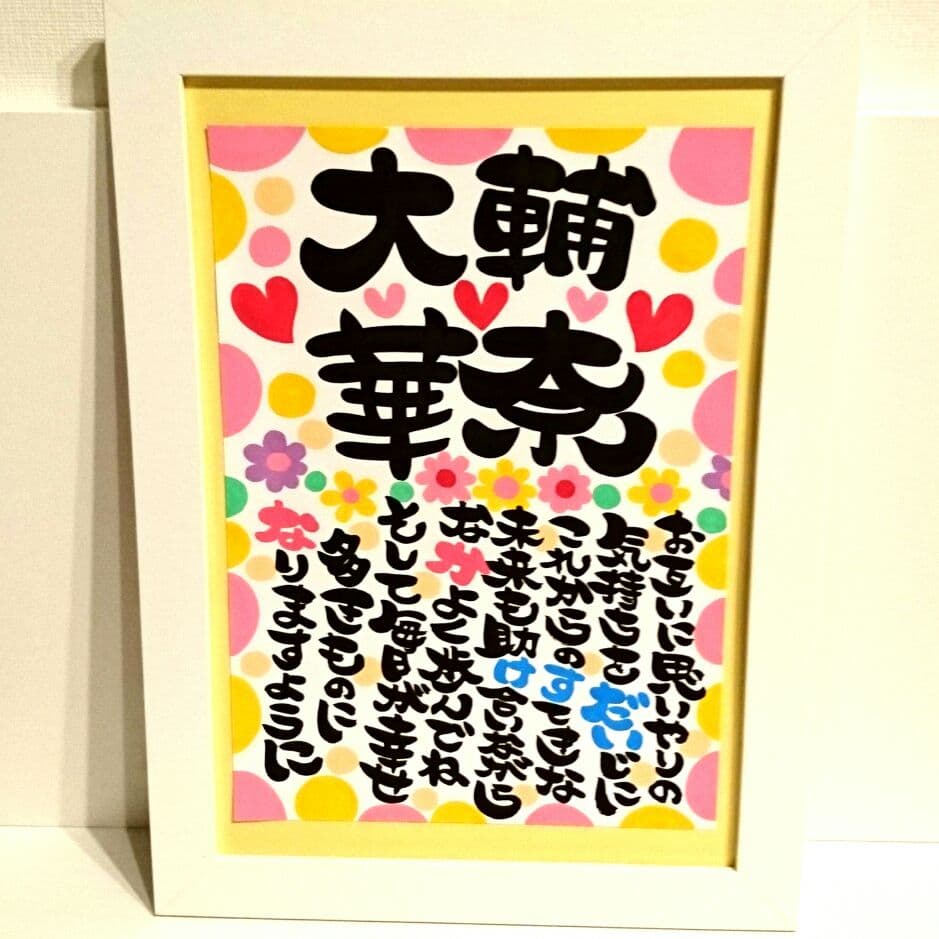 大輔
華奈
お互いに思いやりの
気持ちをだいじに
これからのすてきな
未来も助け合いながら
なかよく歩んでね
そして毎日が幸せ
多きものに
なりますように